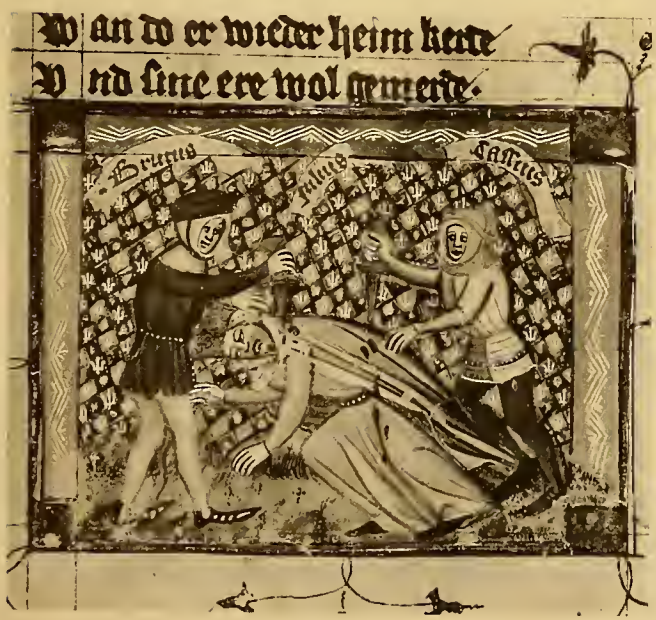 Wan do er wieder heim kerte
Vnd sine ere wol gemerte.
Brutus
Julius
Cassius